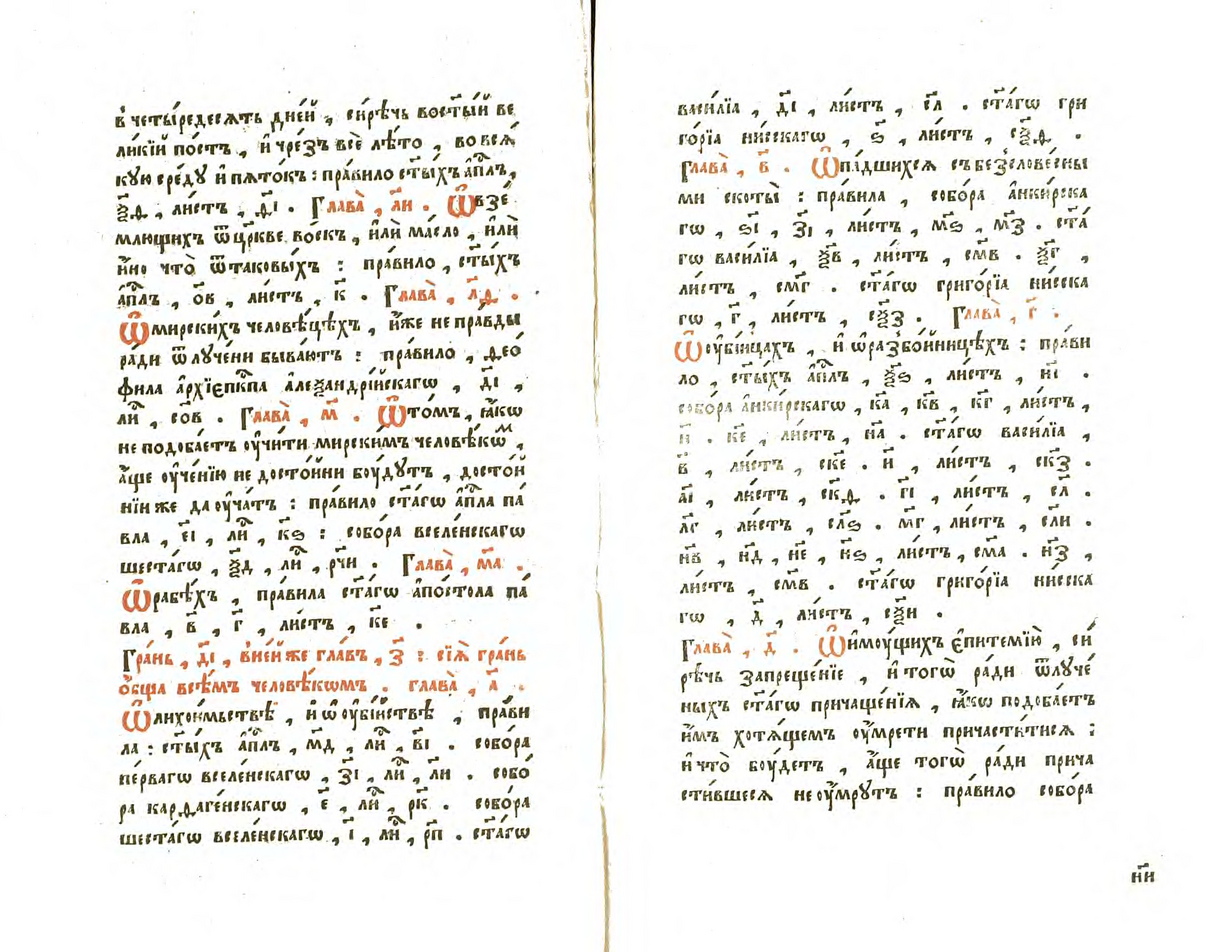 в҆ четы́редесѧть дне́й , си́рѣчь востⷭ҇ы́й ве
ли́кїй по́стъ , и҆ чре́зъ всѐ лѣ́то , во всѧ́
кую сре́ду и҆ пѧто́къ : пра́вило ст҃ы́хъ а҆пⷭ҇лъ,
ѯ҃ѳ , ли́стъ , ѳ҃і . Глава̀ , л҃и . Ѡ҆ взе́
млющихъ ѿ цр҃кве во́скъ , и҆лѝ ма́сло , и҆лѝ
и҆́но что̀ ѿ таковы́хъ : пра́вило , ст҃ы́хъ
а҆пⷭ҇лъ , о҃в , ли́стъ , к҃ . Глава̀ , л҃ѳ .
Ѡ҆ мирски́хъ человѣ́цѣхъ , и҆́же не пра́вды
ра́ди ѿлуче́ни быва́ютъ : пра́вило , ѳео́
фила а҆рхїепⷭ҇кпа а҆леѯандрі́йскагѡ , д҃і ,
лиⷭ҇ , со҃в . Глава̀ , м҃ . Ѡ҆ то́мъ , ꙗ҆́кѡ
не подоба́етъ оу҆чи́ти мирски́мъ человѣ́кѡⷨ ,
а҆́ще оу҆че́нїю не досто́йни бꙋ́дꙋтъ , досто́й
нїи же да оу҆ча́тъ : пра́вило ст҃а́гѡ а҆пⷭ҇ла па́
вла , є҃і , лиⷭ҇ , к҃ѕ : собо́ра вселе́нскагѡ
шеста́гѡ , ѯ҃д , лиⷭ҇ , рч҃и . Глава̀ , м҃а .
Ѡ҆ рабѣ́хъ , пра́вила ст҃а́гѡ а҆по́стола па́
вла , в҃ , г҃ , ли́стъ , к҃е .
Гра́нь , д҃і , в не́й же гла́въ , з҃ : сїѧ̀ гра́нь
о҆́бща всѣ́мъ человѣ́кѡмъ . глава̀ , а҃ .
Ѡ҆ лихои́мьствѣ , и҆ ѡ҆ оу҆бі́йствѣ , пра́ви
ла : ст҃ы́хъ а҆пⷭ҇лъ , м҃д , лиⷭ҇ , в҃і . собо́ра
пе́рвагѡ вселе́нскагѡ , з҃і , лиⷭ҇ , л҃и . собо́
ра карѳаге́нскагѡ , є҃ , лиⷭ҇ , р҃к . собо́ра
шеста́гѡ вселе́нскагѡ , і҃ , лиⷭ҇ , р҃п . ст҃а́гѡ
васи́лїа , д҃і , ли́стъ , с҃л . ст҃а́гѡ гри
го́рїа ни́сскагѡ , ѕ҃ , ли́стъ , сѯ҃ѳ .
Глава̀ , в҃ . Ѡ҆ па́дшихсѧ съ безслове́сны
ми скоты̀ : пра́вила , собо́ра а҆нки́рска
гѡ , ѕ҃і , з҃і , ли́стъ , м҃ѕ , м҃з . ст҃а́
гѡ васи́лїа , ѯ҃в , ли́стъ , см҃в . ѯ҃г ,
ли́стъ , см҃г . ст҃а́гѡ григо́рїа ни́сска
гѡ , г҃ , ли́стъ , сѯ҃з . Глава̀ , г҃ .
Ѡ҆ оу҆бі́йцахъ , и҆ ѡ҆ разбо́йницѣхъ : пра́ви
ло , ст҃ы́хъ а҆пⷭ҇лъ , ѯ҃ѕ , ли́стъ , и҃і .
собо́ра а҆нки́рскагѡ , к҃а , к҃в , к҃г , ли́стъ ,
н҃ . к҃е , ли́стъ , н҃а . ст҃а́гѡ васи́лїа ,
в҃ , ли́стъ , ск҃е . и҃ , ли́стъ , ск҃з .
а҃і , ли́стъ , ск҃ѳ . г҃і , ли́стъ , с҃л .
л҃г , ли́стъ , сл҃ѕ . м҃г , ли́стъ , сл҃и .
н҃в , н҃д , н҃е , н҃ѕ , ли́стъ , см҃а . н҃з ,
ли́стъ , см҃в . ст҃а́гѡ григо́рїа ни́сска
гѡ , д҃ , ли́стъ , сѯ҃и .
Глава̀ , д҃ . Ѡ҆ и҆мꙋ́щихъ є҆питемїю̀ , си́
рѣчь запреще́нїе , и҆ того̀ ра́ди ѿлуче́
ныхъ ст҃а́гѡ причаще́нїѧ , ꙗ҆́кѡ подоба́етъ
и҆̀мъ хотѧ́щемъ оу҆мре́ти причасти́тисѧ :
и҆ что̀ бꙋ́детъ , а҆́ще тогѡ̀ ра́ди прича
сти́вшесѧ не оу҆́мрꙋтъ : пра́вило собо́ра
н҃и